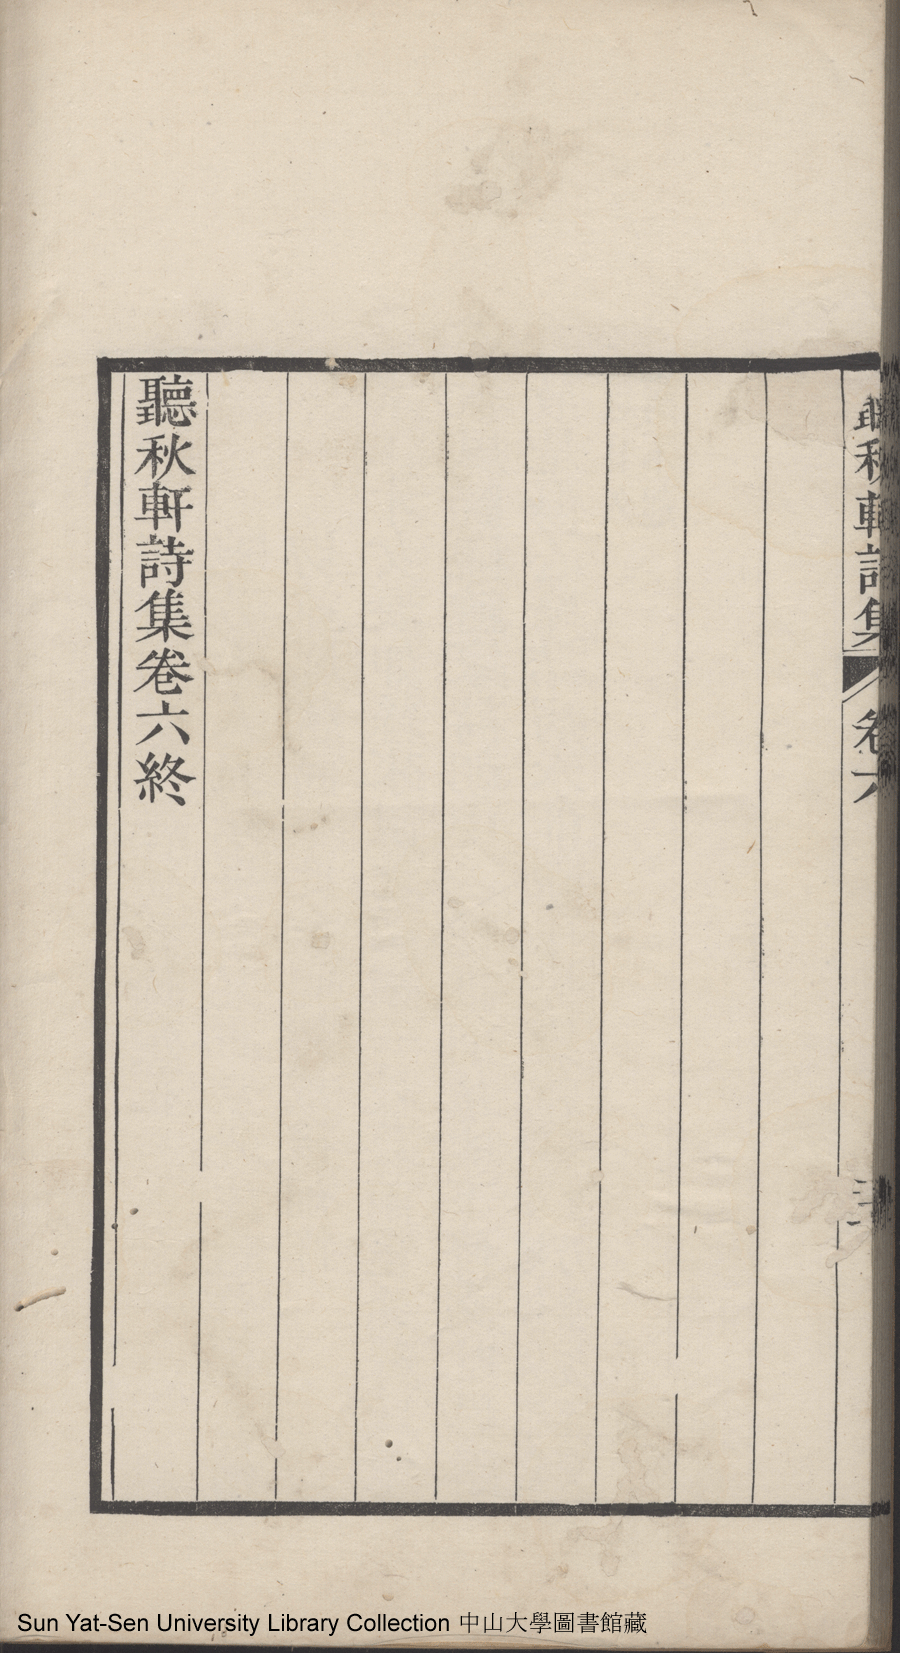 聽秋軒詩集
卷六
聽秋軒詩集卷六終
Sun Yat-Sen University Library Collection 中山大學圖書館藏